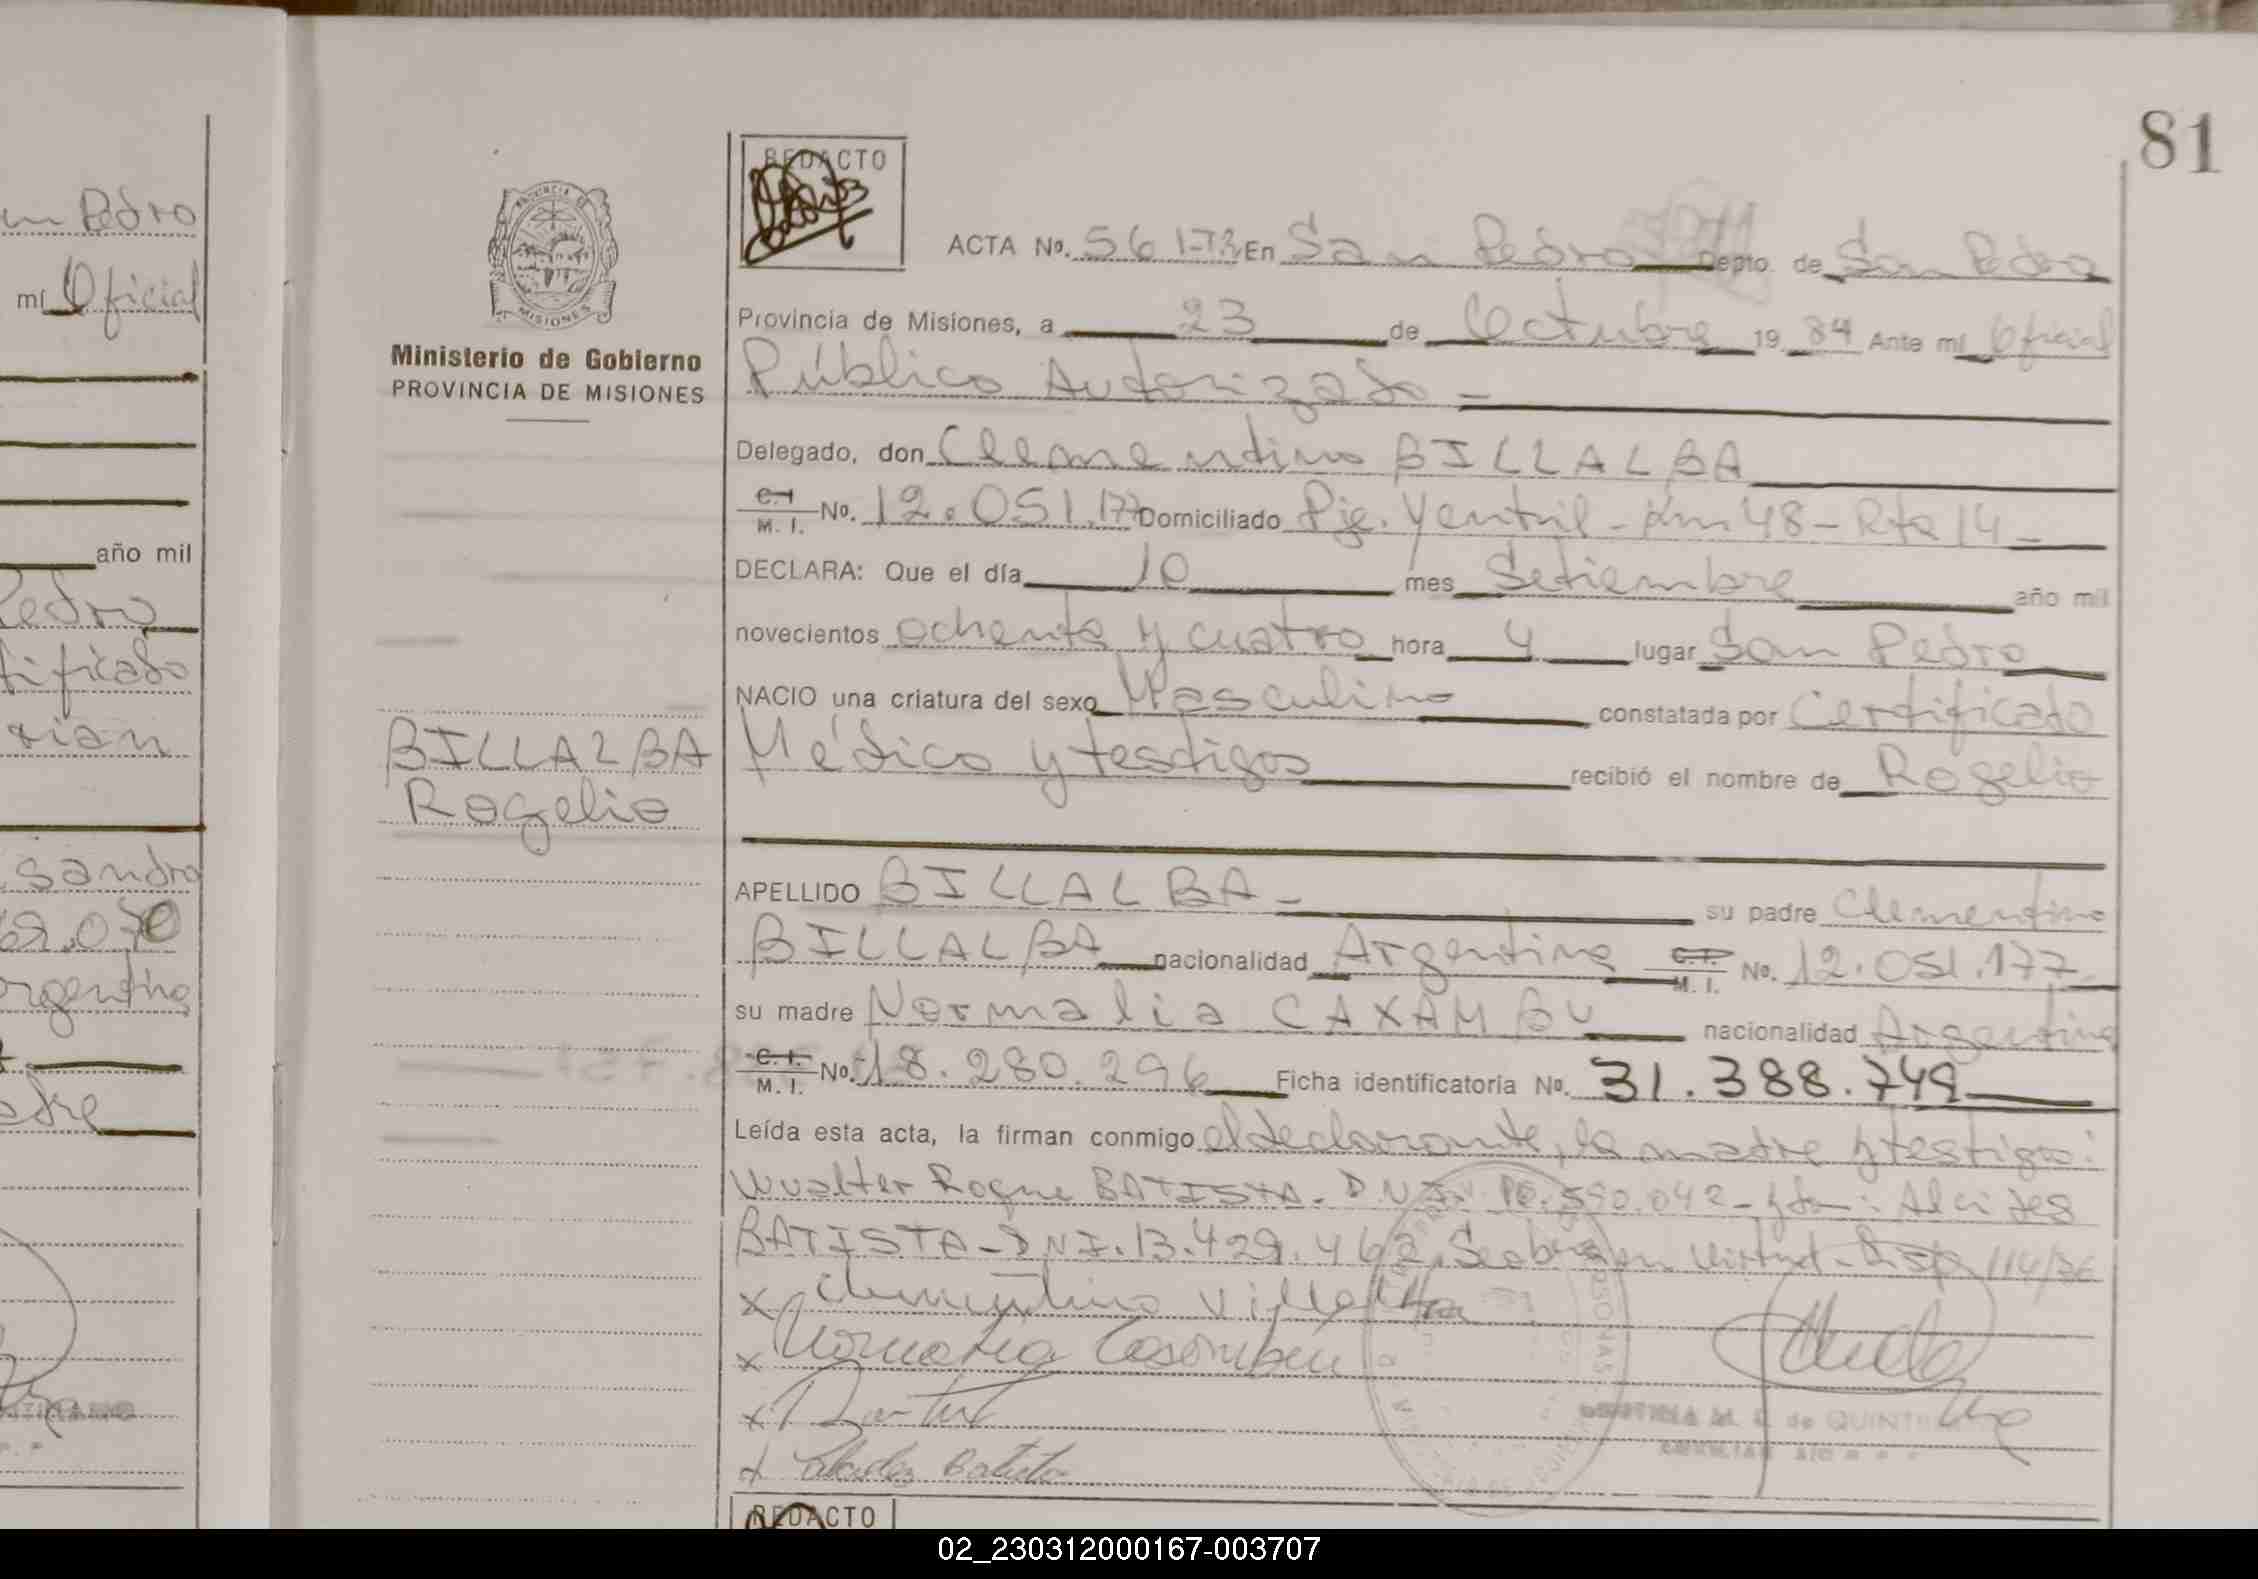 81
REDACTO
ACTA No. 561-73 En San Pedro Depto. de San Pedro
Provincia de Misiones, a 23 de Octubre 19 84 Ante mí Oficial
Público Autorizado
Delegado, don Clementino BILLALBA
C.I. M. I. No. 12.051.177 Domiciliado Pje. Km 48 - Rta 14
DECLARA: Que el día 10 mes Setiembre año mil
novecientos ochenta y cuatro hora 4 lugar San Pedro
NACIO una criatura del sexo Masculino constatada por Certificado
Médico y testigos recibió el nombre de Rogelio
APELLIDO BILLALBA su padre Clementino
BILLALBA nacionalidad Argentina C.I. M. I. No. 12.051.177
su madre Normalia CAXAMBU nacionalidad Argentina
C.I. M. I. No. 18.280.296 Ficha identificatoria No. 31.388.749
Leída esta acta, la firman conmigo el declarante, la madre y testigos:
Wualter Roque BATISTA - D.N.I. 590.042 - Alcides
BATISTA - DNI. 13.429.462
x Clementino Villalba
x
x
x Batista
de QUINTI
REDACTO
PROVINCIA DE
MISIONES
Ministerio de Gobierno
PROVINCIA DE MISIONES
BILLALBA
Rogelio
Pedro
mí Oficial
año mil
Pedro
tificado
rian
sandro
69.070
argentina
02_230312000167-003707